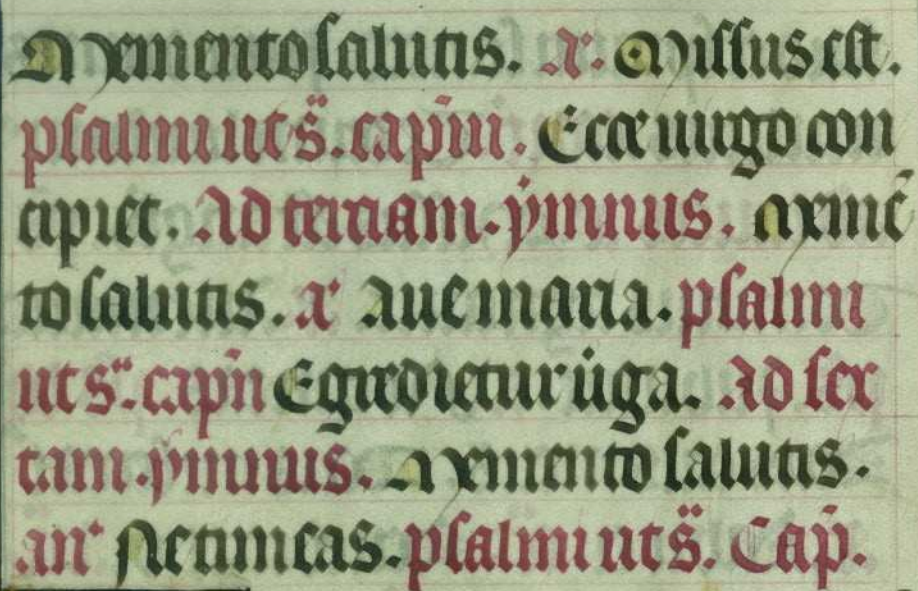 Memento salutis. a͛. Missus est.
psalmi ut s̈. cap̄m. Ecce uirgo con
cipiet. Ad terciam. ẏmnus. Memē
to salutis. a͛ Aue maria. psalmi
ut s̈. cap̄m Egredietur ūga. Ad sex
tam. ẏmnus. Memento salutis.
an͛ Ne timeas. psalmi ut s̈. Cap̄.